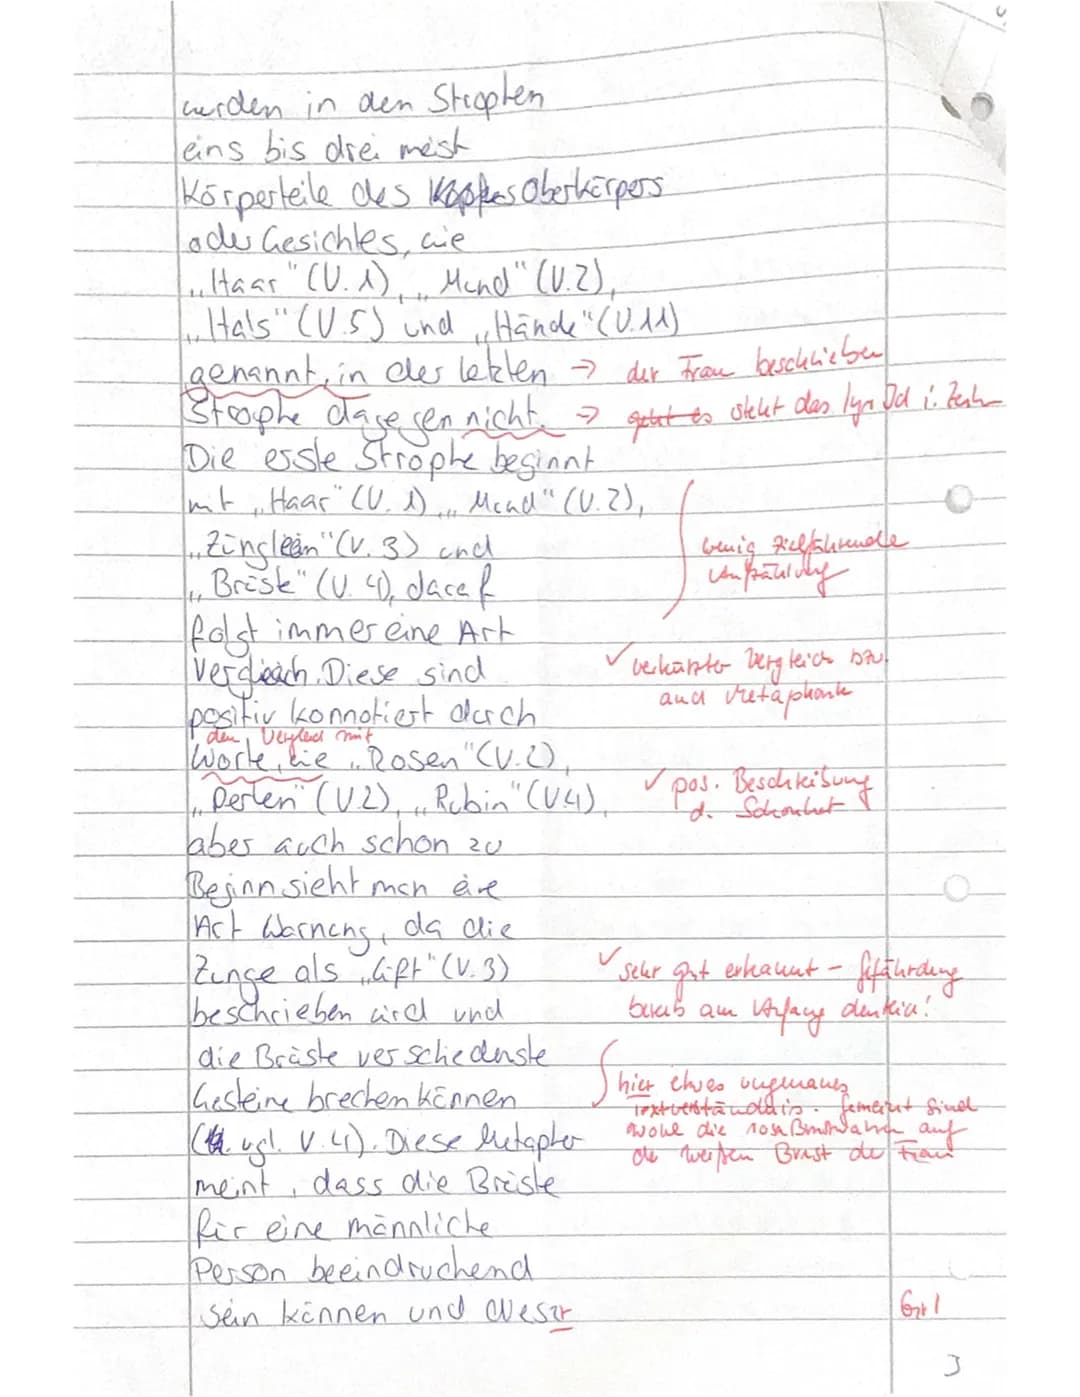 werden in den Strophen
eins bis drei meist
Körperteile des Kopfes Oberkörpers
oder Gesichtes, wie
„Haar" (V. 1), „Mund" (V.2),
„Hals" (V.5) und „Hände" (V.11)
genannt, in der letzten → der Frau beschrieben
Strophe dagegen nicht. → geht es steht das lyr Ich i. Zentr
Die erste Strophe beginnt
mit „Haar" (V. 1), „Mund" (V.2),
„Zünglein" (V. 3) und
wenig zielführende
Aufzählung
„Brüste" (V. 4), darauf
folgt immer eine Art
Vergleich. Diese sind
✓ verkürzter Vergleich bzw.
auch Metaphorik
positiv konnotiert durch
den Vergleich mit
Worte, wie „Rosen" (V.2),
„Perlen" (V.2), „Rubin" (V.4),
✓ pos. Beschreibung
d. Schönheit
aber auch schon zu
Beginn sieht man eine
Art Warnung, da die
Zunge als „Gift" (V.3)
beschrieben wird und
✓ sehr gut erkannt – Gefährdung
bereits am Anfang denkbar!
die Brüste verschiedenste
Gesteine brechen können
(vgl. V.4). Diese Metapher
hier etwas ungenaues
Textverständnis. Gemeint sind
wohl die rosa Brustwarzen auf
der weißen Brust der Frau
meint, dass die Brüste
für eine männliche
Person beeindruchend
sein können und dieser
Gr!
3